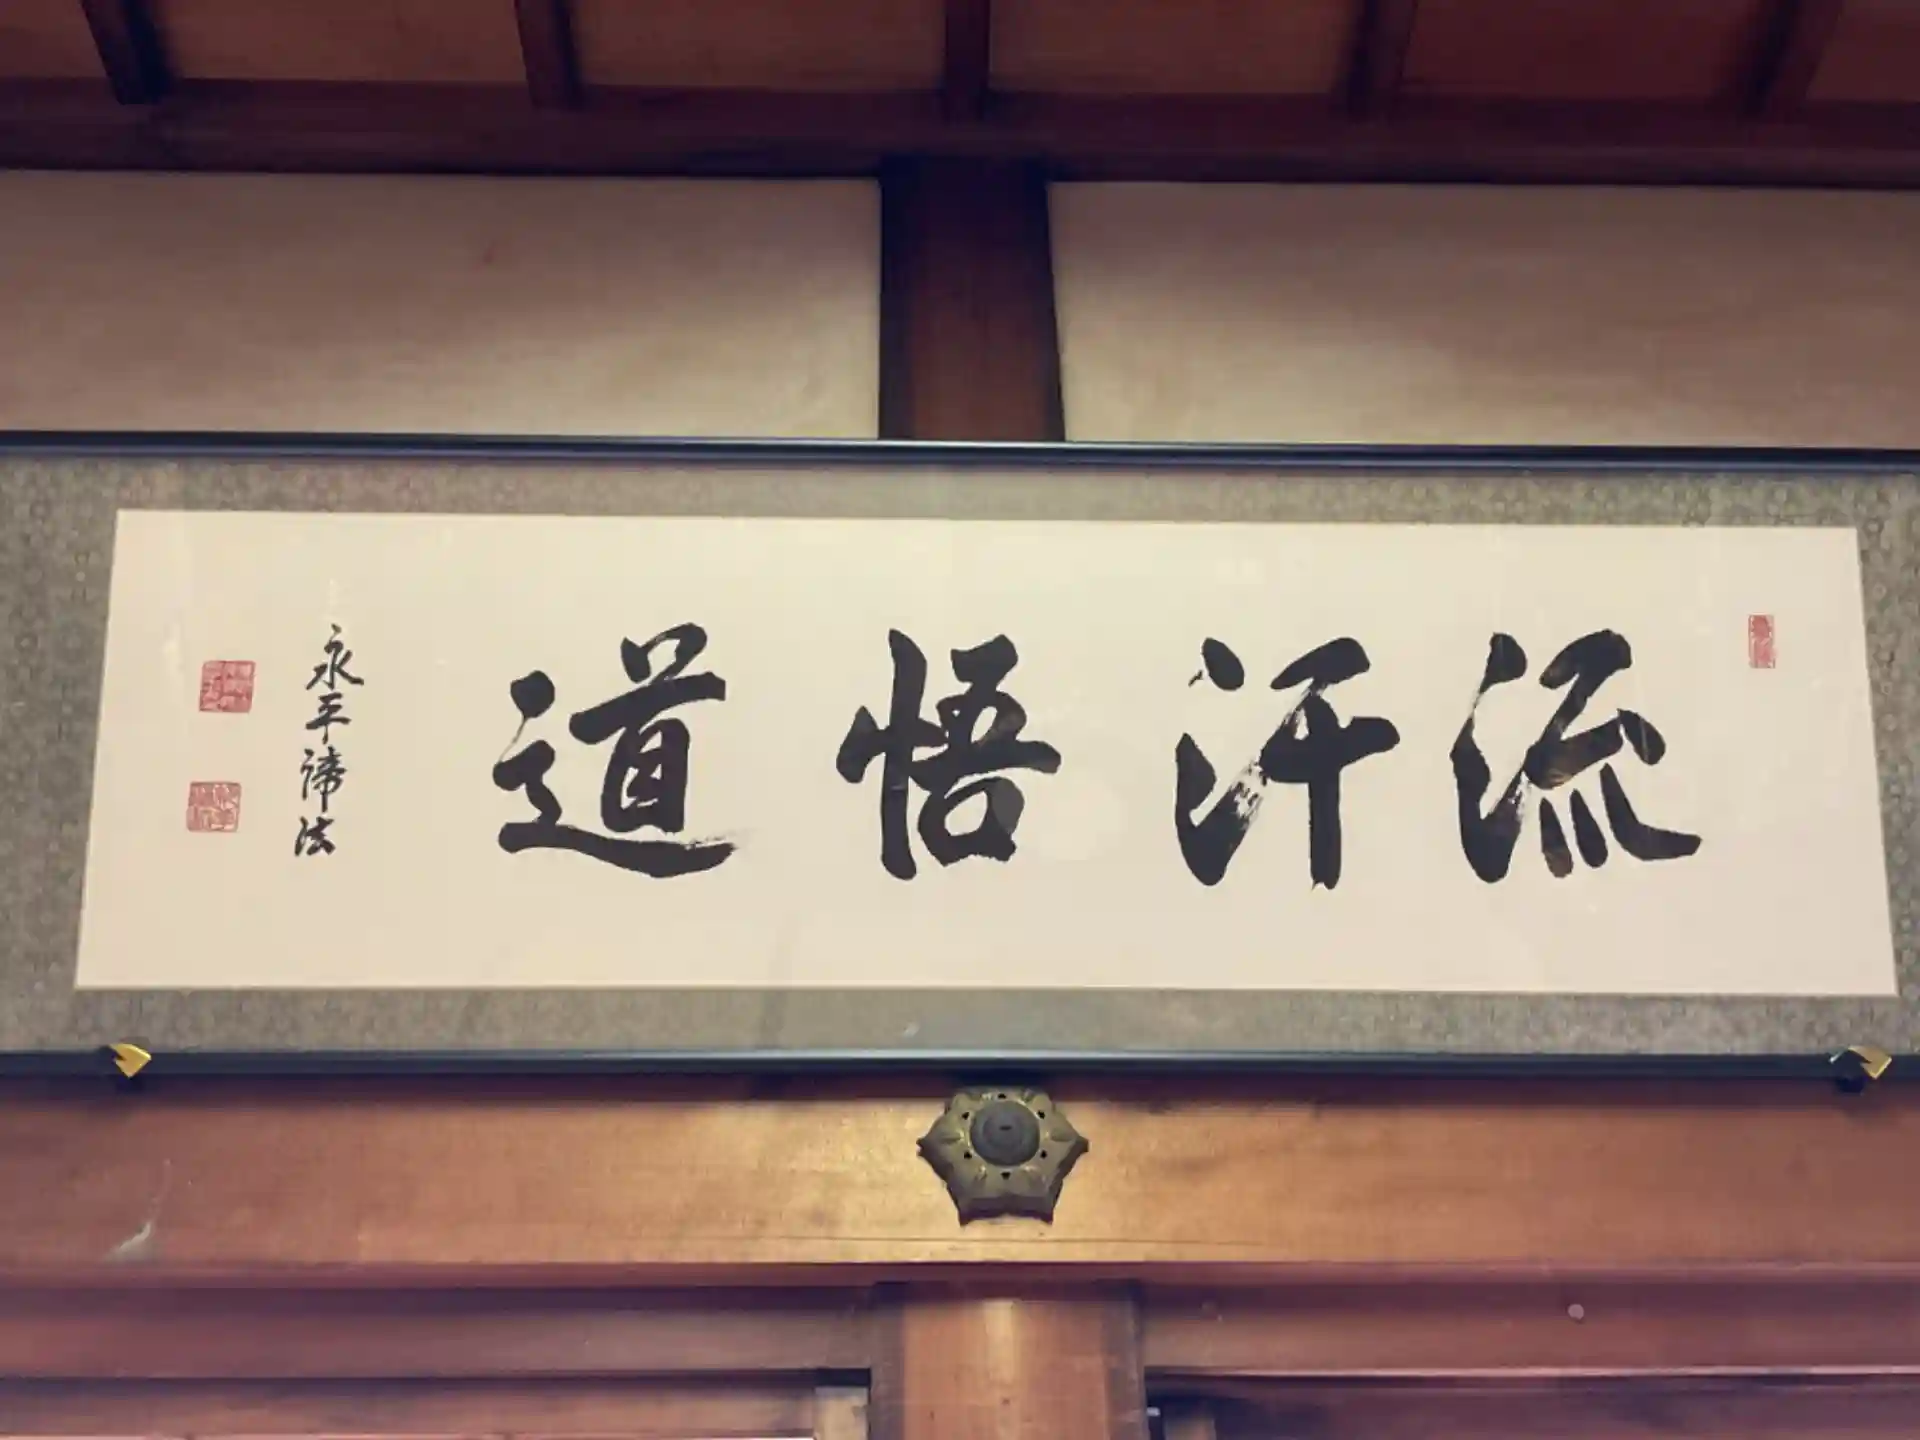 流汗悟道
永平諦法